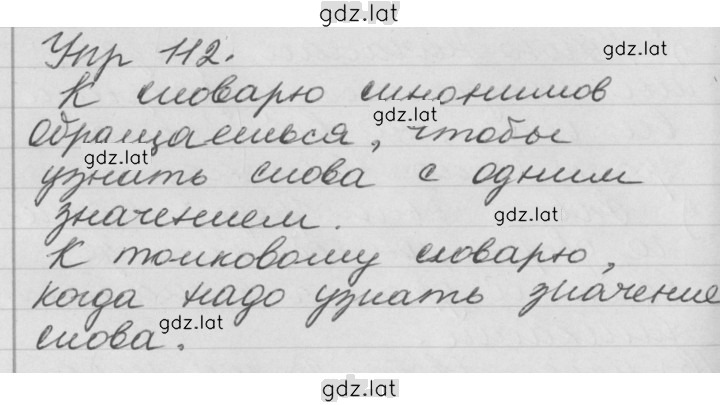 gdz.lat
Упр 112.
gdz.lat
К словарю синонимов
gdz.lat
обращаешься, чтобы
gdz.lat
узнать слова с одним
значением.
gdz.lat
К толковому словарю,
когда надо узнать значение
gdz.lat
слова.
gdz.lat